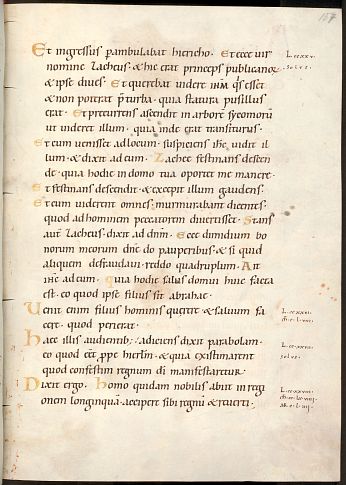 Et ingressus pambulabat hiericho. Et ecce uir
nomine Zacheus. & hic erat princeps publicanoꝝ
& ipse diues. Et querebat uidere ihm̄ qs̄ esset
& non poterat p̄ turba. quia statura pusillus
erat. Et precurrens ascendit in arborē sycomorū
ut uideret illum. quia inde erat transiturus.
Et cum uenisset ad locum. suspiciens ihc̄ uidit il
lum. & dixit ad eum. Zachee festinans descen
de. quia hodie in domo tua oportet me manere.
Et festinans descendit. & excepit illum gaudens.
Et cum uiderent omnes. murmurabant dicentes.
quod ad hominem peccatorem diuertisset. Stans
aut̄ Zacheus. dixit ad dn̄m. Ecce dimidium bo
norum meorum dn̄e do pauperibus. & si quid
aliquem defraudaui. reddo quadruplum. Ait
ihc̄ ad eum. quia hodie salus domui huic facta
est. eo quod ipse filius sit abrahae.
Uenit enim filius hominis querere & saluum fa
cere. quod perierat.
Haec illis audientib; adiciens dixit parabolam.
eo quod eēt ꝓpe hierlm̄. & quia existimarent
quod confestim regnum dī manifestaretur.
Dixit ergo. Homo quidam nobilis abiit in regi
onem longinquā. accipere sibi regnū & reuerti.